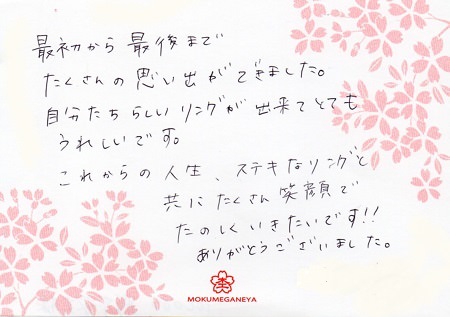 最初から最後まで
たくさんの思い出ができました。
自分たちらしいリングが出来てとても
うれしいです。
これからの人生、ステキなリングと
共にたくさん笑顔で
たのしくいきたいです!!
ありがとうございました。
杢
MOKUMEGANEYA